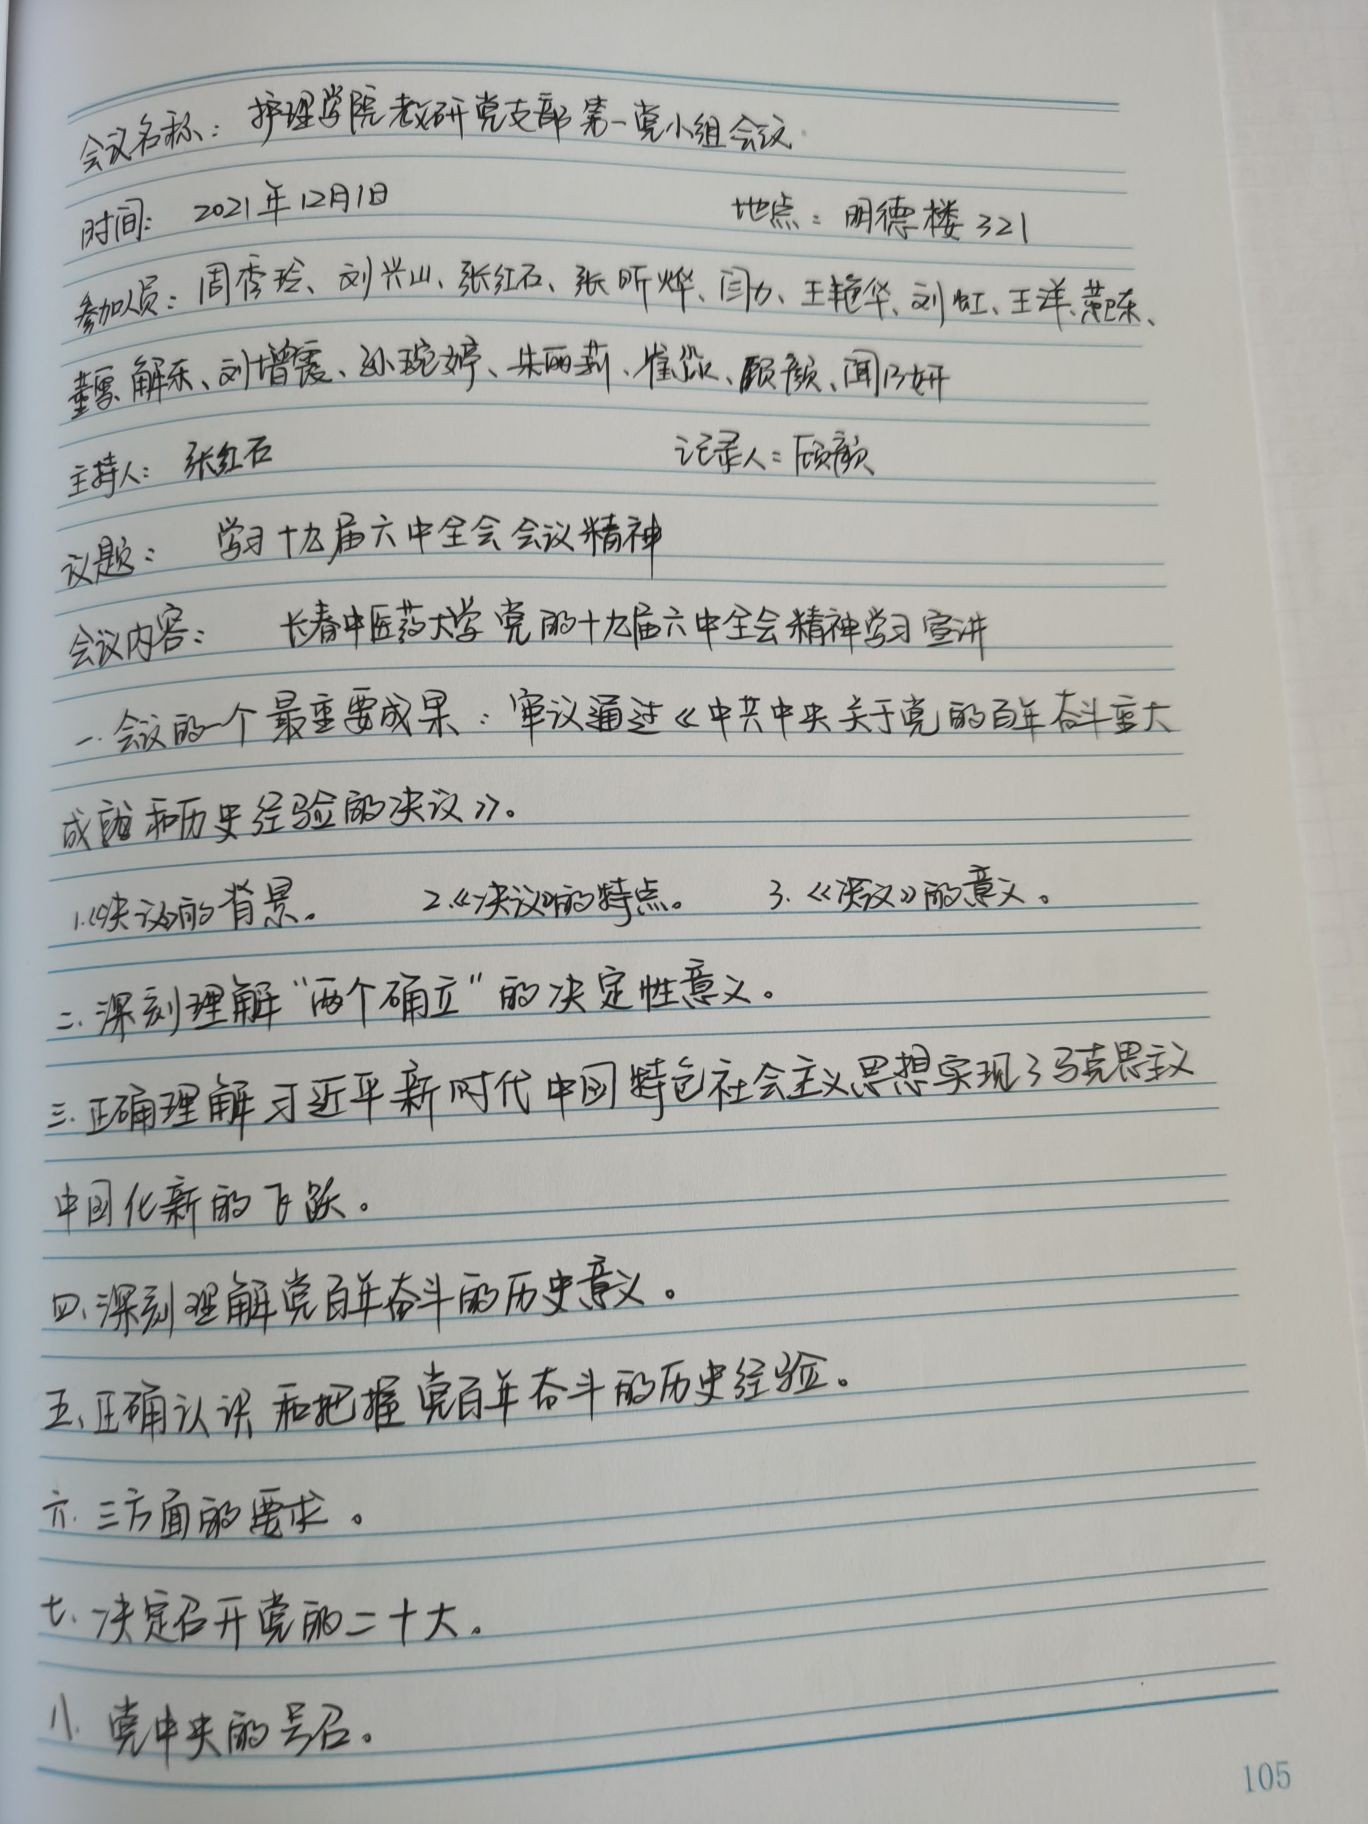 会议名称：护理学院教研党支部第一党小组会议
时间：2021年12月1日 地点：明德楼321
参加人员：周秀玲、刘兴山、张红石、张昕烨、闫力、王艳华、刘虹、王洋、范東、
董雪、解东、刘增霞、孙琬婷、朱丽莉、崔淼、顾颜、闻乃妍
主持人：张红石 记录人：顾颜
议题：学习十九届六中全会会议精神
会议内容：长春中医药大学党的十九届六中全会精神学习宣讲
一.会议的一个最重要成果：审议通过《中共中央关于党的百年奋斗重大
成就和历史经验的决议》。
1.《决议》的背景。 2.《决议》的特点。 3.《决议》的意义。
二.深刻理解“两个确立”的决定性意义。
三.正确理解习近平新时代中国特色社会主义思想实现了马克思主义
中国化新的飞跃。
四、深刻理解党百年奋斗的历史意义。
五、正确认识和把握党百年奋斗的历史经验。
六.三方面的要求。
七.决定召开党的二十大。
八.党中央的号召。
105